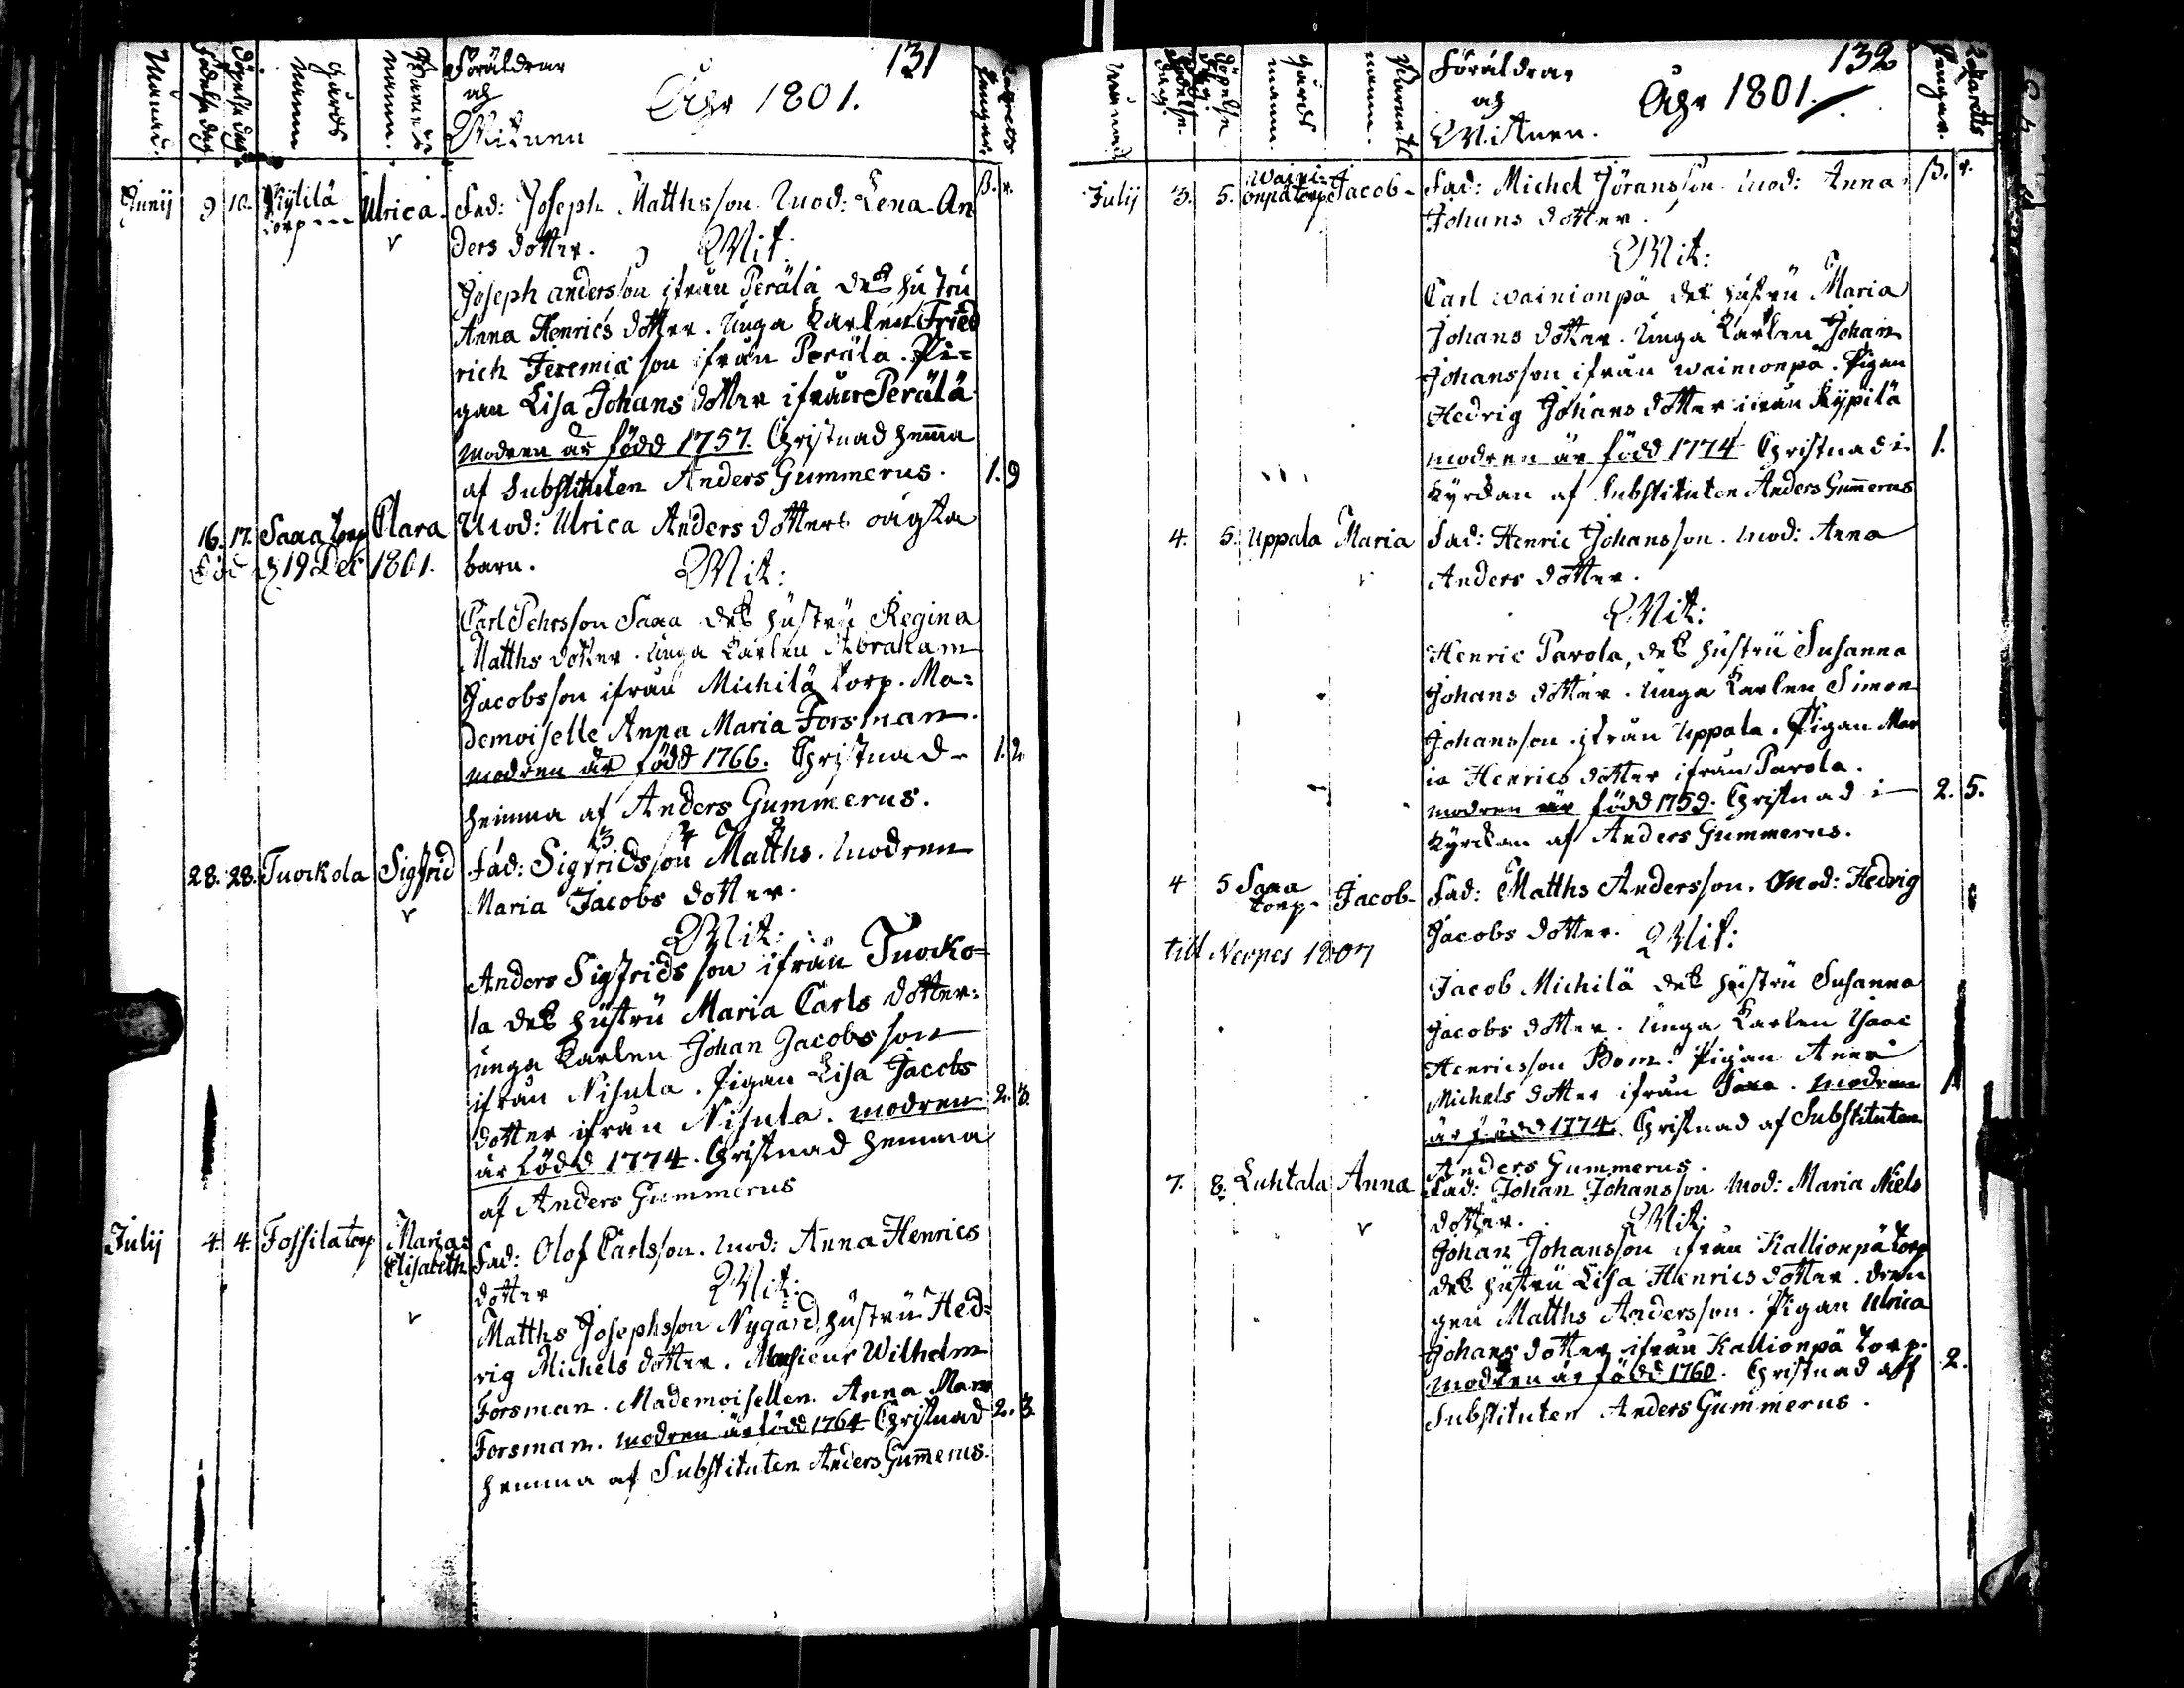 131
Månad.
Födelse dag.
Döpelse dag.
Gårds namn
Barnets namn.
Föräldrar
och
Witnen
Åhr 1801.
Lazarets Penger.
ß. r.
Junij 9 10. Kylilä torp --- Ulrica.
Fad: Joseph Matthsson. Mod: Lena An
ders dotter. Wit:
Joseph andersson ifrån Perälä des hustru
Anna Henrics dotter. Unga Karlen Fried
rich Jeremiæ son ifrån Perälä. Pi=
gan Lisa Johans dotter ifrån Perälä
modren är född 1757. Christnad hema
af Substituten Anders Gummerus. 1. 9
16. 17. Saaa torp Clara
Död d 19 Dec 1801.
Mod: Ulrica Anders dotters oägta
barn. Wit:
Carl Pehrsson Saaa des hustru Regina
Matths dotter. Unga Karlen Abraham
Jacobsson ifrån Michilä torp. Ma=
demoiselle Anna Maria Forsman.
modren är född 1766. Christnad 1. 2.
hemma af Anders Gummerus.
28. 28. Tuorkola Sigfrid
Fad: Sigfridsson Matths. Modren
Maria Jacobs dotter.
Wit:
Anders Sigfrids son ifrån Tuorko=
la des hustru Maria Carls dotter:
unga Karlen Johan Jacobsson
ifrån Nisula. Pigan Lisa Jacobs
dotter ifrån Nisula. modren 2. 3.
är född 1774. Christnad hemma
af Anders Gummerus
Julij 4. 4. Fossila torp Maria: Elisabeth
Fad: Olof Carlsson. Mod: Anna Henrics
dotter Wit:
Matths Josephsson Nygård, hustru Hed=
vig Michels dotter. Monsieur Wilhelm
Forsman. Mademoisellen Anna Mar
Forsman. modren är född 1764 Christnad 2. 3.
hemma af Substituten Anders Gumerus.
132
Månad
Födelse dag.
Döpelse dag.
Gårds namn.
Barnets namn.
Föräldrar
och
Witnen.
Åhr 1801.
Lazaretts Penger.
ß. r.
Julij 3. 5. Waini= onpä torp Jacob
Fad: Michel Jöransson. Mod: Anna
Johans dotter.
Wit:
Carl wainionpä des hustru Maria
Johans dotter. Unga Karlen Johan
Johansson ifrån wainionpä. Pigan
Hedvig Johans dotter ifrån Kypilä
modren är född 1774 Christnad i 1.
Kyrckan af Substituten Anders Gumerus
4. 5. Uppala Maria
Fad: Henric Johansson. Mod: Anna
Anders dotter.
Wit:
Henric Parola, des hustru Susanna
Johans dotter. Unga Karlen Simon
Johansson ifrån Uppala. Pigan Mar
ia Henrics dotter ifrån Parola.
modren är född 1759. Christnad i 2. 5.
Kyrckan af Anders Gummerus.
4 5 Saaa torp. Jacob
till Nerpes 1807
Fad: Matths Andersson. Mod: Hedvig
Jacobs dotter. Wit:
Jacob Michilä des hustru Susanna
Jacobs dotter. Unga Karlen Isaac
Henricsson Bom. Pigan Anna
Michels dotter ifrån Saaa. modren 1.
är född 1774. Christnad af Substituten
Anders Gummerus.
7. 8. Luhtala Anna
Fad: Johan Johansson Mod: Maria Niels
dotter. Wit:
Johan Johansson ifrån Kallionpä torp
des hustru Lisa Henrics dotter. dren
gen Matths Andersson. Pigan Ulrica
Johans dotter ifrån Kallionpä torp.
modren är född 1760. Christnad aff 2.
Substituten Anders Gummerus.